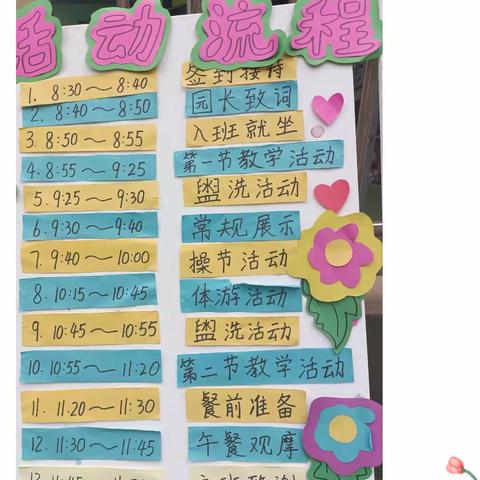 活动流程
1. 8:30～8:40 签到接待
2. 8:40～8:50 园长致词
3. 8:50～8:55 入班就坐
4. 8:55～9:25 第一节教学活动
5. 9:25～9:30 盥洗活动
6. 9:30～9:40 常规展示
7. 9:40～10:00 操节活动
8. 10:15～10:45 体游活动
9. 10:45～10:55 盥洗活动
10. 10:55～11:20 第二节教学活动
11. 11.20～11:30 餐前准备
12. 11:30～11:45 午餐观摩